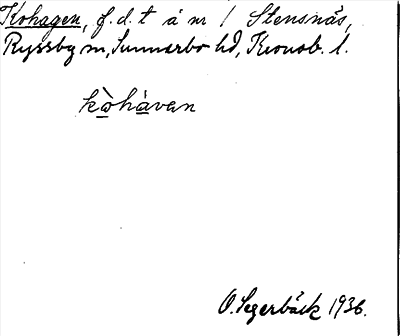 Kohagen, f.d.t å nr 1 Stensnäs,
Ryssby sn, Sunnerbo hd, Kronob. l.
kò̲há̲van
O. Segerbäck 1936.